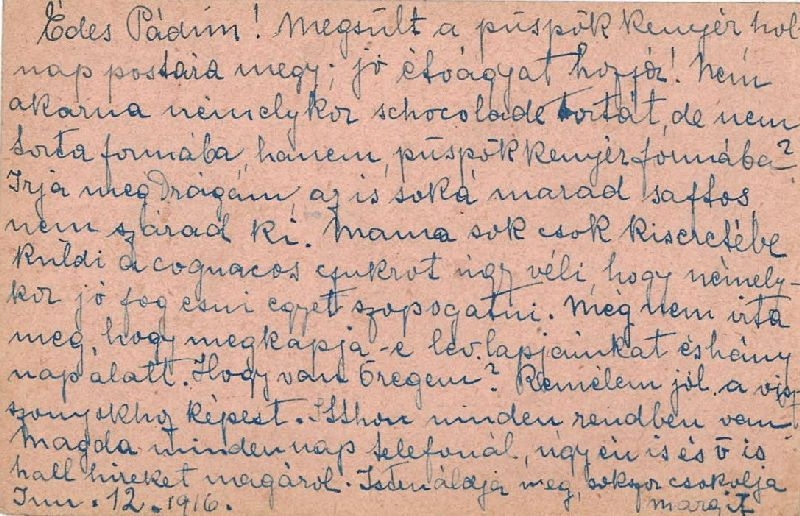 Édes Pádim! Megsült a püspök kenyér hol
nap postára megy; jó étvágyat hozzá! Nem
akarna némelykor schocolade tortát, de nem
torta formába, hanem, püspök kenyér formába?
Irja meg Drágám, az is soká marad saftos,
nem szárad ki. Mama sok csok kiseretébe
küldi a cognacos czukrot úgy véli, hogy némely-
kor jó fog esni egyet szopogatni. Még nem irta
meg, hogy megkapja-e lev.lapjainkat és hány
nap alatt. Hogy van Öregem? Remélem jól, a visz
szonyokhoz képest. Itthon minden rendben van.
Magda minden nap telefonál, úgy én is és ö is
hall hireket magáról. Isten áldja meg, sokszor csokolja
Jun. 12. 1916. Margit